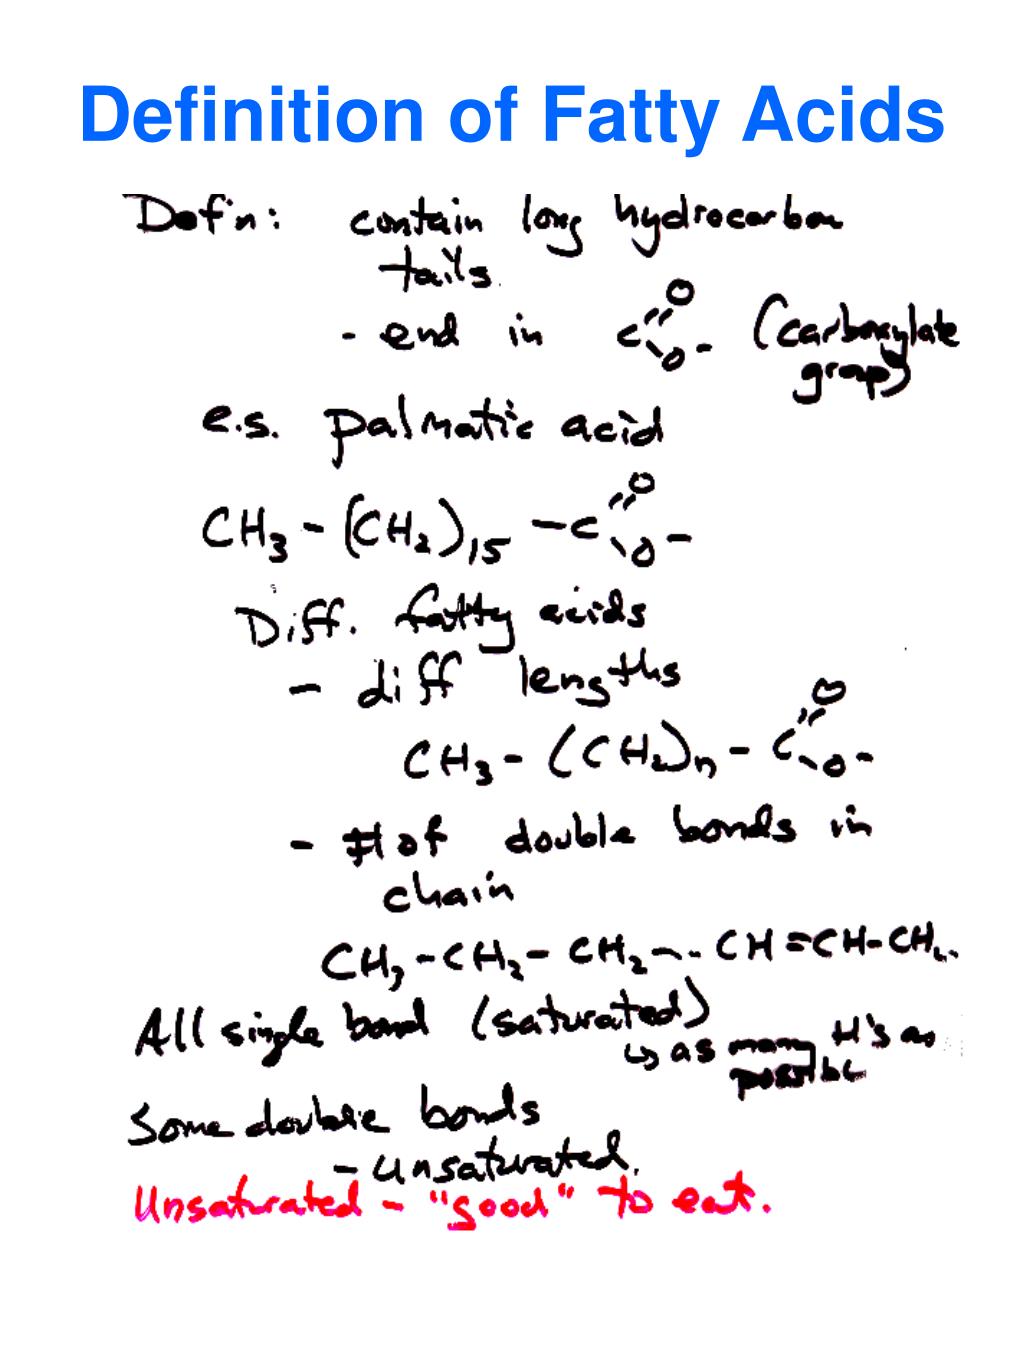 Definition of Fatty Acids
Defn: contain long hydrocarbon
tails.
- end in C O O- (carboxylate
group)
e.g. palmatic acid
CH3 - (CH2)15 - C O O-
Diff. fatty acids
- diff lengths
CH3 - (CH2)n - C O O-
- # of double bonds in
chain
CH3 - CH2 - CH2 ~.. CH = CH - CH2..
All single bond (saturated)
↳ as many H's as
possible
Some double bonds
- unsaturated.
Unsaturated - "good" to eat.